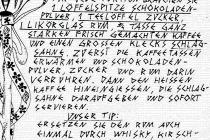 1 LÖFFELSPITZE SCHOKOLADEN-
PULVER, 1 TEELÖFFEL ZUCKER,
1 LIKÖRGLAS RUM, 1 TASSE GANZ
STARKEN FRISCH GEMACHTEN KAFFEE
UND EINEN GROSSEN KLECKS SCHLAG-
SAHNE. ZUERST DIE KAFFEETASSEN
ERWÄRMEN UND SCHOKOLADEN-
PULVER, ZUCKER UND RUM DARIN
VERRÜHREN. DANN DEN HEISSEN
KAFFEE HINEINGIESSEN, DIE SCHLAG-
SAHNE DARAUFGEBEN UND SOFORT
SERVIEREN.
UNSER TIP:
ERSETZEN SIE DEN RUM AUCH
EINMAL DURCH WHISKY, KIRSCH-